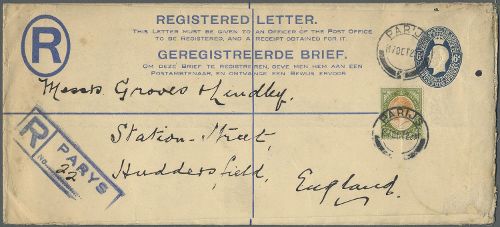 REGISTERED LETTER.
THIS LETTER MUST BE GIVEN TO AN OFFICER OF THE POST OFFICE
TO BE REGISTERED, AND A RECEIPT OBTAINED FOR IT.
GEREGISTREERDE BRIEF.
OM DEZE BRIEF TE REGISTREREN, GEVE MEN HEM AAN EEN
POSTAMBTENAAR, EN ONTVANGE EEN BEWIJS ERVOOR.
R
PARIJS
Messrs Groves & Lindley,
Station-Street,
Huddersfield,
England.
R PARYS
No. 22
PARIJS